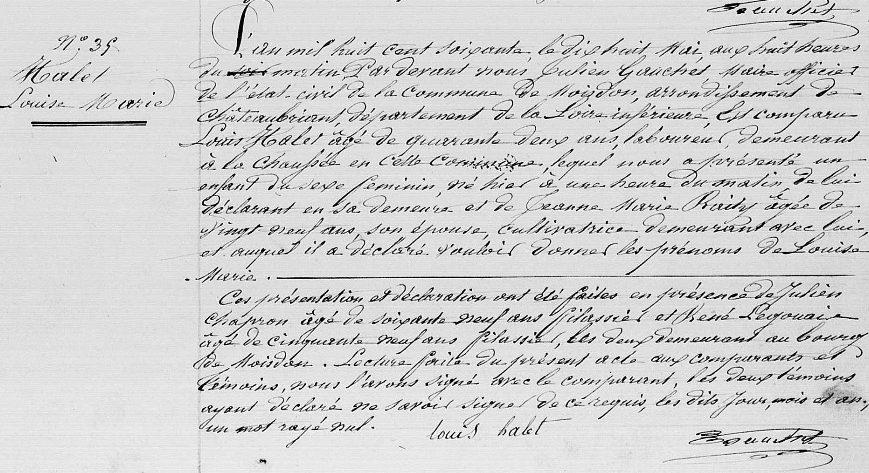 Gauchet
N.º 35
Halet
Louise Marie
L'an mil huit cent soixante, le dix huit Mai, aux huit heures
du soir matin Par devant nous Julien Gauchet, Maire officier
de l'état-civil de la Commune de Moisdon, arrondissement de
Châteaubriant, département de la Loire inférieure, Est comparu
Louis Halet âgé de quarante deux ans, laboureur, demeurant
à la Chaussée en cette Commune, lequel nous a présenté un
enfant du sexe féminin, né hier à une heure du matin de lui
déclarant en sa demeure et de Jeanne Marie âgée de
vingt neuf ans, son épouse, cultivatrice demeurant avec lui,
et auquel il a déclaré vouloir donner les prénoms de Louise
Marie.
Ces présentation et déclaration ont été faites en présence de Julien
Chapron âgé de soixante neuf ans filassier et René Legouais
âgé de cinquante neuf ans filassier, les deux demeurant au bourg
de Moisdon. Lecture faite du présent acte aux comparants et
témoins, nous l'avons signé avec le comparant, les deux témoins
ayant déclaré ne savoir signer de ce requis, les dits Jour, mois et an,
un mot rayé nul.
louis halet
Gauchet